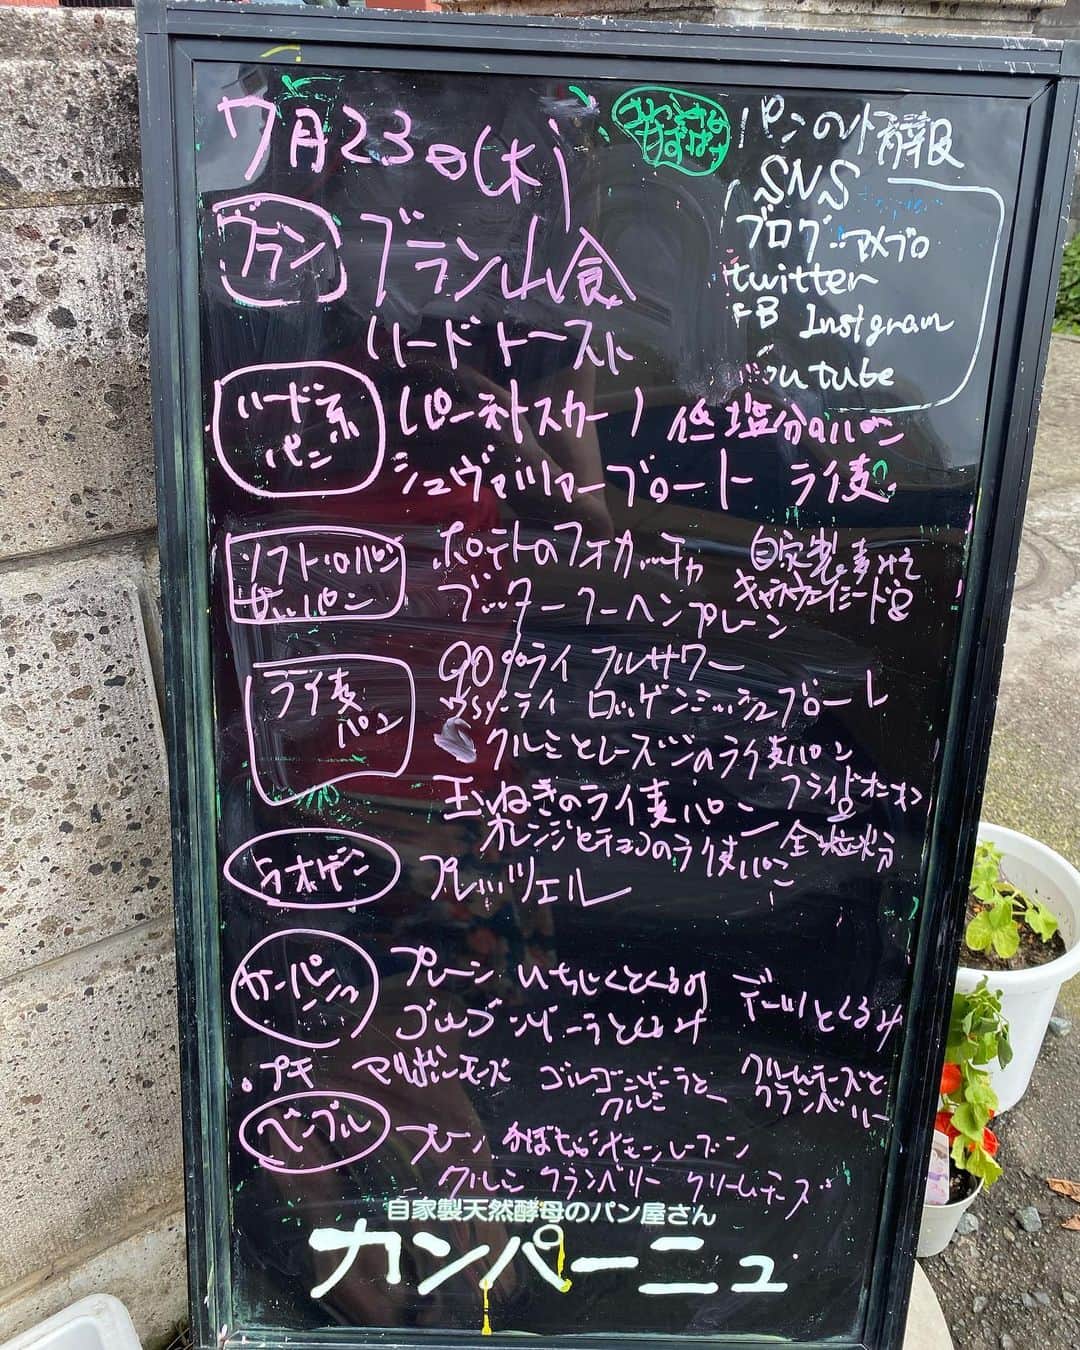 7月23日(木)
パンの情報
SNS
ブログ:アメブロ
twitter
FB Instgram
Youtube
ブラン
ブラン山食
ハードトースト
ハード系
パン
(パーネトスカーノ 低塩分のパン
シュヴァルツァーブロート ライ麦
ソフト
パン
ポテトのフォカッチャ
自家製
キャラウェイシード
ブッタークーヘンプレーン
ライ麦
パン
90%ライ フルサワー
ライ ロッゲンミッシュブロート
クルミとレーズンのライ麦パン
玉ねぎのライ麦パン フライドオニオン
オレンジとチョコのライ麦パン 全粒粉
ラオゲン
プレッツェル
カンパーニュ
プレーン いちじくとくるみ デーツとくるみ
ゴルゴンゾーラとくるみ
・プチ マルボンモーズ ゴルゴンゾーラと
クルミ
クリームチーズと
クランベリー
ベーグル
プレーン かぼちゃ シナモンレーズン
クルミ クランベリー クリームチーズ
自家製天然酵母のパン屋さん
カンパーニュ